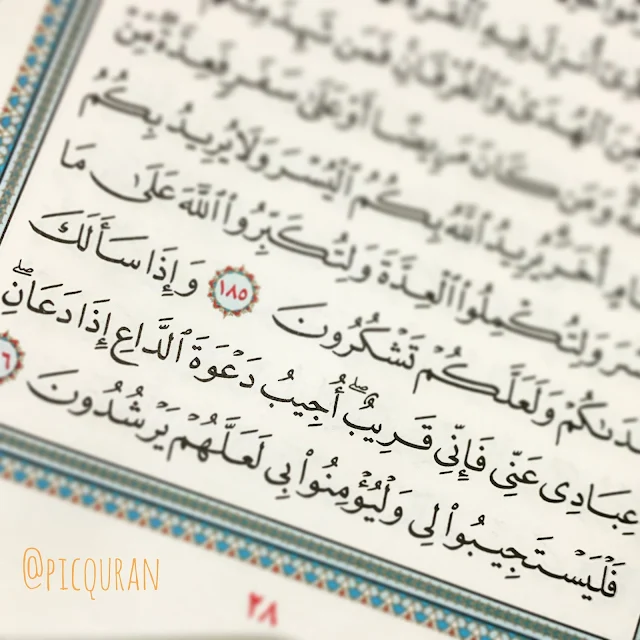 أُنزِلَ فِيهِ ٱلْقُرْ
مِّنَ ٱلْهُدَىٰ وَٱلْفُرْقَانِ فَمَن شَهِدَ مِنكُمُ
وَمَن كَانَ مَرِيضًا أَوْ عَلَىٰ سَفَرٍ فَعِدَّةٌ مِّنْ
أَيَّامٍ أُخَرَ يُرِيدُ ٱللَّهُ بِكُمُ ٱلْيُسْرَ وَلَا يُرِيدُ بِكُمُ
ٱلْعُسْرَ وَلِتُكْمِلُوا۟ ٱلْعِدَّةَ وَلِتُكَبِّرُوا۟ ٱللَّهَ عَلَىٰ مَا
هَدَىٰكُمْ وَلَعَلَّكُمْ تَشْكُرُونَ ١٨٥ وَإِذَا سَأَلَكَ
عِبَادِى عَنِّى فَإِنِّى قَرِيبٌ ۖ أُجِيبُ دَعْوَةَ ٱلدَّاعِ إِذَا دَعَانِ ۖ
فَلْيَسْتَجِيبُوا۟ لِى وَلْيُؤْمِنُوا۟ بِى لَعَلَّهُمْ يَرْشُدُونَ ٦
٢٨
@PICQURAN